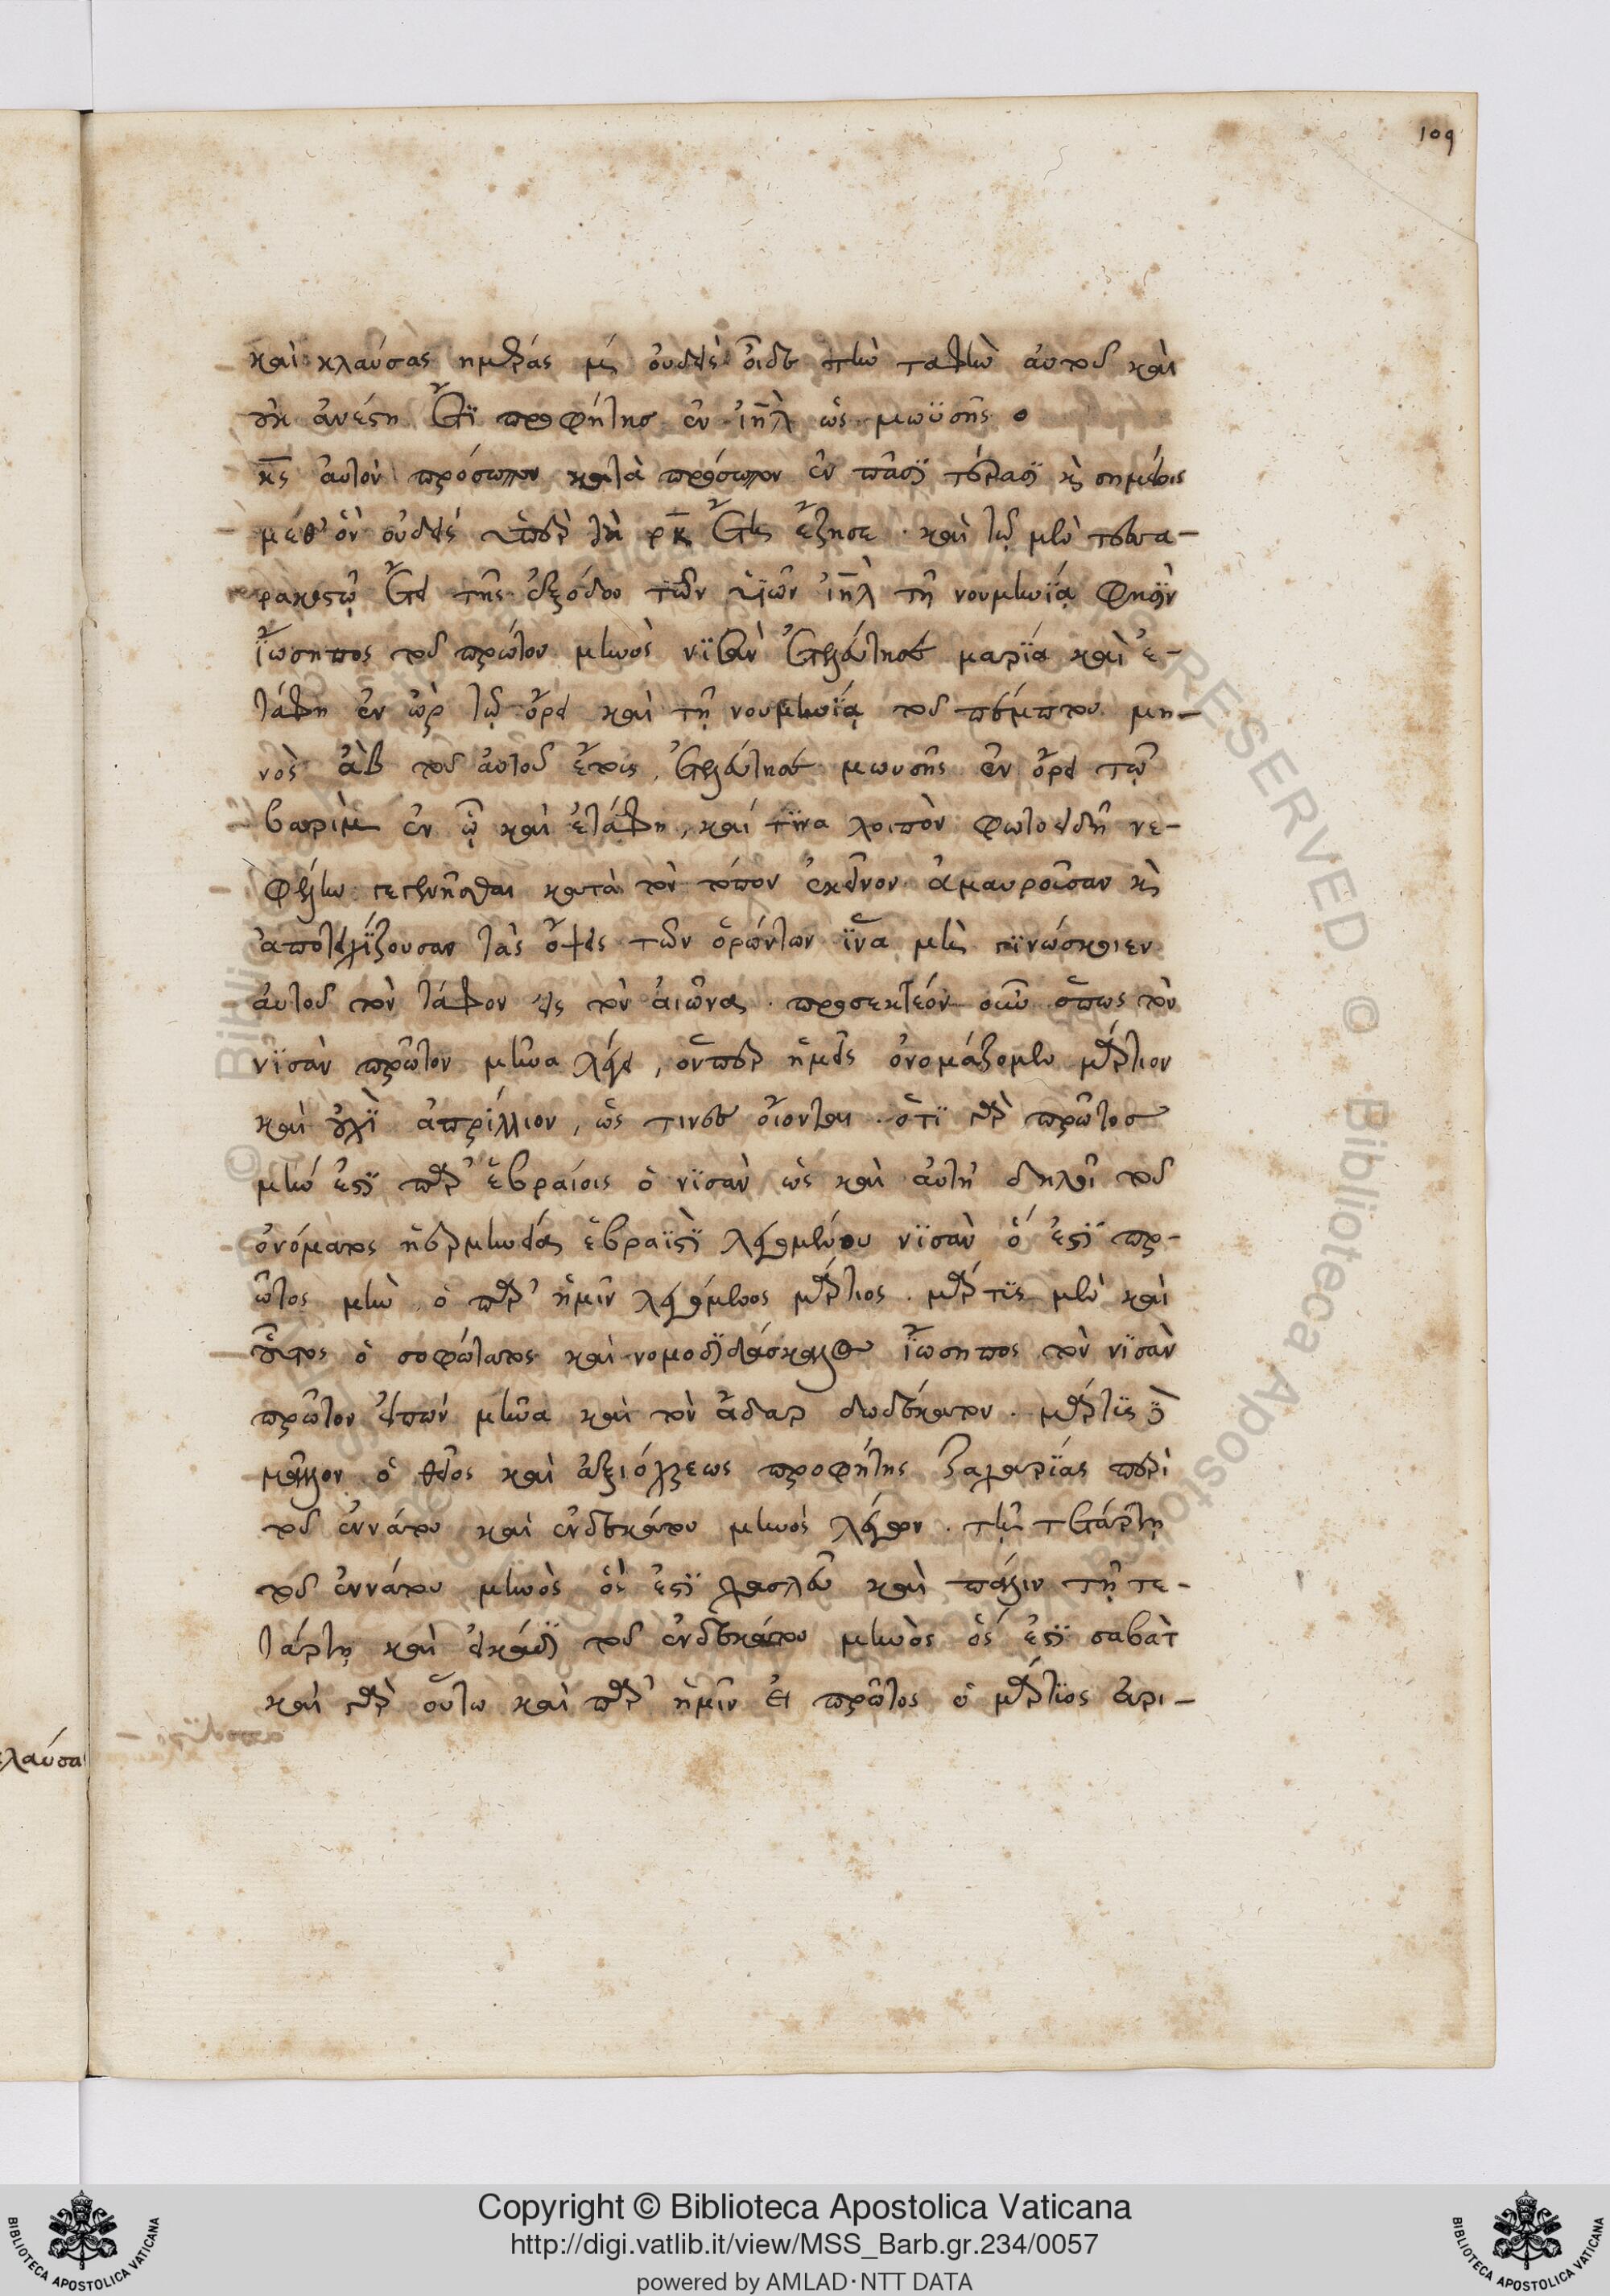 109
καὶ κλαύσας ημέρας μ́ ὀυδεὶς ὀῖδε τὴν ταφὴν ἀυτοῦ καὶ
οὐκ ἀνέστη ἔτϊ προφήτησ ἐν ἰη̅λ ὡς μωϋσῆς ὁ
κ̅ς ἀυτὸν πρόσωπον κατὰ πρόσωπον ἐν πᾶσϊ τέρασϊ κὶ σημείοις
μέθ' ὃν οὐδεὶς ὑπὲρ τὰ ρ̅κ ἔτη ἔζησε · καὶ τῷ μὲν τεσσα-
ρακοστῷ ἔτει τῆς ἐξόδου τῶν ὑϊῶν ἰη̅λ τῆ νουμηνϊᾳ φησὶν
ϊώσηπος τοῦ πρώτου μηνὸς νϊσὰν ἐτελεύτησε μαρϊὰ καὶ ἐ-
τάφη ἐν ὢρ τῷ ὄρει καὶ τῇ νουμηνϊᾳ τοῦ πέμπτου μη-
νὸς ἀβ τοῦ ἀυτοῦ ἔτους, ἐτελεύτησε μωυσῆς ἐν ὄρει τῷ
βαριμ ἐν ᾧ καὶ ἐτάφη, καί τϊνα λοιπὸν φωτοειδῆ νε-
φέλην γεγενῆσθαι κατὰ τὸν τόπον ἐκεῖνον ἀμαυροῦσαν κὶ
ἀποτειχϊζουσαν τὰς ὄψεις τῶν ὁρώντων ϊνα μὴ γϊνώσκοιεν
ἀυτοῦ τὸν τάφον εἰς τὸν ἀιῶνα · προσεκτέον οὖν ὅπως τὸν
νϊσὰν πρῶτον μῆνα λέγει, ὅνπερ ἡμεῖς ὀνομάζομεν μάρτιον
καὶ οὐχὶ ἀπρίλλιον, ὥς τινες οἴονται · ὅτϊ γὰρ πρῶτοσ
μήν ἐστϊ παρ' ἑβραίοις ὁ νϊσὰν ὡς καὶ ἀυτὴ δηλοῖ τοῦ
ὀνόματος ἡ ἑρμηνεία ἑβραϊστϊ λεγομένου νϊσὰν ὅ ἐστϊ πρ-
ῶτος μὴν ὁ παρ' ἡμῖν λεγόμενος μάρτιος · μάρτϊς μὲν καὶ
οὗτος ὁ σοφώτατος καὶ νομοδϊδάσκαλος ϊώσηπος τὸν νϊσὰν
πρῶτον εἰπὼν μῆνα καὶ τὸν ἄδαρ δωδέκατον · μάρτϊς δὲ
μᾶλλον ὁ θεῖος καὶ ἀξιόχρεως προφήτης ζαχαρϊας περὶ
τοῦ ἐννάτου καὶ ἑνδεκάτου μηνὸς λέγων · τῇ τετάρτῃ
τοῦ ἐννάτου μηνὸς ὅς ἐστϊ χασλεῦ καὶ πάλιν τῇ τε-
τάρτῃ καὶ εἰκάδϊ τοῦ ἑνδεκάτου μηνὸς ὅς ἐστϊ σαβὰτ
καὶ γὰρ οὕτω καὶ παρ' ἡμῖν εἰ πρῶτος ὁ μάρτϊος ἀρι-
Copyright © Biblioteca Apostolica Vaticana
http://digi.vatlib.it/view/MSS_Barb.gr.234/0057
powered by AMLAD·NTT DATA
BIBLIOTECA APOSTOLICA VATICANA
BIBLIOTECA APOSTOLICA VATICANA